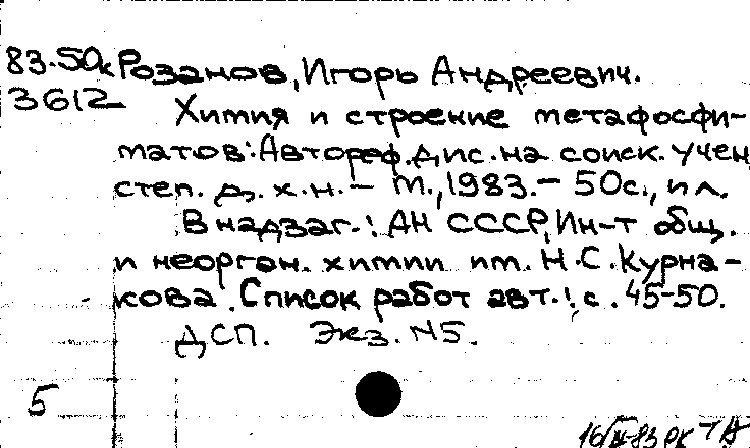 83-50к Розанов, Игорь Андреевич.
3612 Химия и строение метафосфи-
матов: Автореф. дис. на соиск. учен
степ. д. х. н. - М., 1983. - 50с., ил.
В надзаг.: АН СССР, Ин-т общ.
и неорган. химии им. Н.С. Курна-
кова. Список работ авт.: с. 45-50.
ДСП. Экз. №5.
5